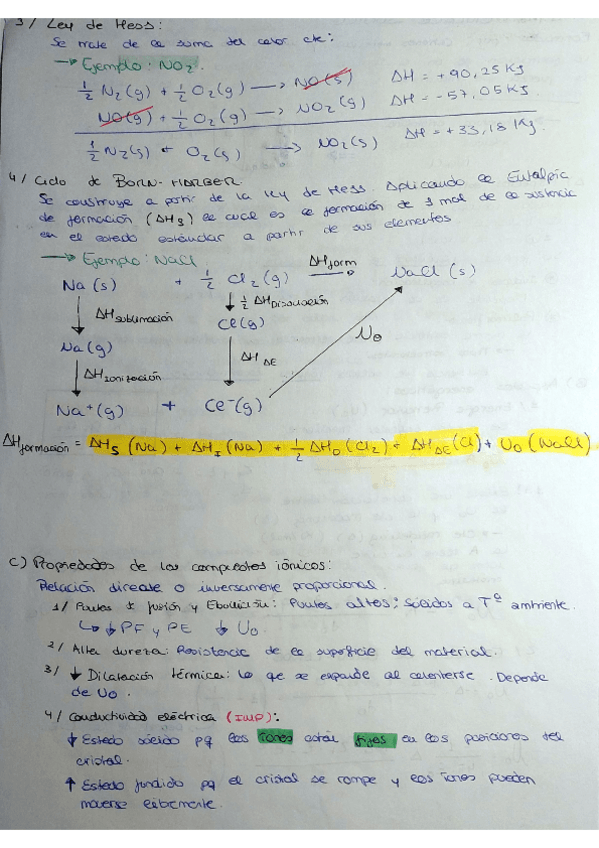 3/ Ley de Hess:
Se trata de la suma del calor etc:
→ Ejemplo: NO₂.
½ N₂(g) + ½ O₂(g) → NO(s) ΔH = +90,25 KJ
NO(g) + ½ O₂(g) → NO₂(g) ΔH = -57,05 KJ
½ N₂(s) + O₂(s) → NO₂(s) ΔH = +33,18 KJ.
4/ Ciclo de BORN-HARBER
Se construye a partir de la ley de Hess. Aplicando la Entalpía
de formación (ΔHs) la cual es la formación de 1 mol de la sustancia
en el estado estándar a partir de sus elementos
→ Ejemplo: NaCl
Na(s) + ½ Cl₂(g) ΔHform → NaCl(s)
↓ ΔHsublimación ↓ ½ ΔHDisociación
Na(g) Cl(g) U₀
↓ ΔHIonización ↓ ΔHΔE
Na⁺(g) + Cl⁻(g)
ΔHformación = ΔHs (Na) + ΔHI (Na) + ½ ΔHD (Cl₂) + ΔHΔE (Cl) + U₀ (NaCl).
C) Propiedades de los compuestos iónicos:
Relación directa o inversamente proporcional.
1/ Puntos fusión y Ebullición: Puntos altos; Sólidos a Tª ambiente.
↳ ↓ PF y PE ↓ U₀.
2/ Alta dureza: Resistencia de la superficie del material.
3/ ↓ Dilatación térmica: Lo que se expande al calentarse. Depende
de U₀.
4/ Conductividad eléctrica (IMP):
↓ Estado sólido pq los iones están fijos en las posiciones del
cristal.
↑ Estado fundido pq el cristal se rompe y los iones pueden
moverse libremente.